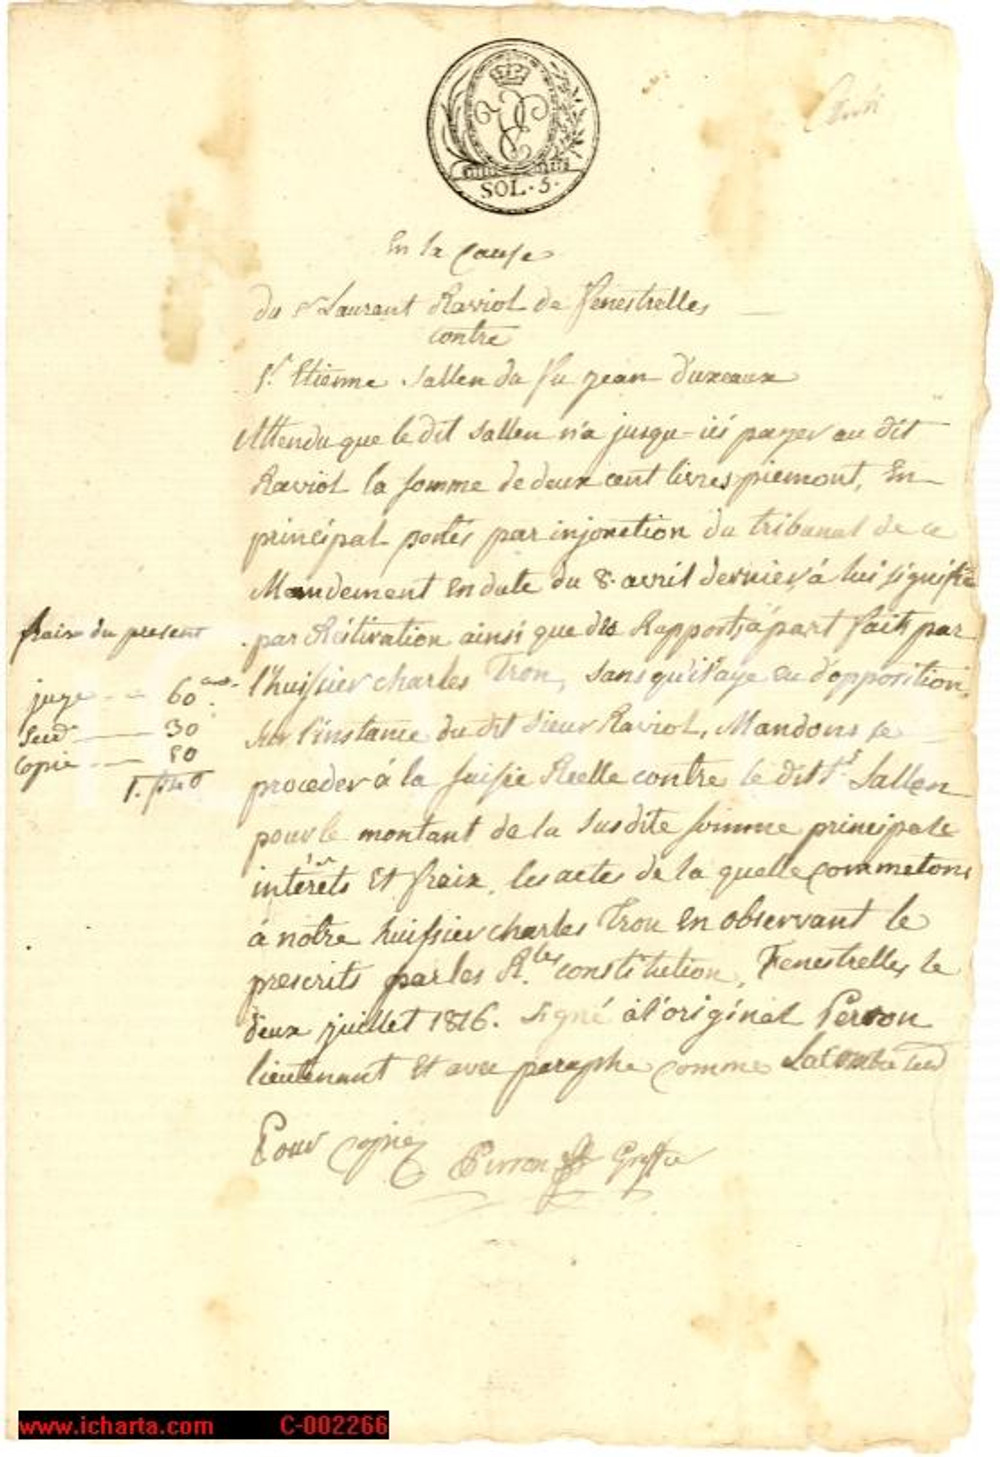 SOL. 5.
En la Cause
du Sr Laurant Raviol de Fenestrelles
contre
Sr. Etienne Sallen du fu jean d'uxeaux
Attendu que le dit Sallen n'a jusqu-ici payer au dit
Raviol la somme de deux cent livres piemont, En
principal portés par injonction du tribunal de ce
Mandement En date du 8. avril dernier, à lui signifiée
par ainsi que des Rapports, à part faits par
l'huissier charles Tron, sans qu'il aye eu d'opposition,
sur l'instance du dit Sieur Raviol, Mandons se
proceder à la saisie Réelle contre le dit Sr. Sallen
pour le montant de la susdite somme principale
interêts Et fraix, les actes de la quelle commetons
à nôtre huissier charles Tron En observant le
prescrits par les R.les constitution, Fenestrelles le
deux juillet 1816. Signé à l'original Perron
lieutenant Et avec paraphe comme Lacombe
Pour copie
Perron Greffier
fraix du present
juge 60
Secd. 30
copie 50
1. 40
www.icharta.com C-002266